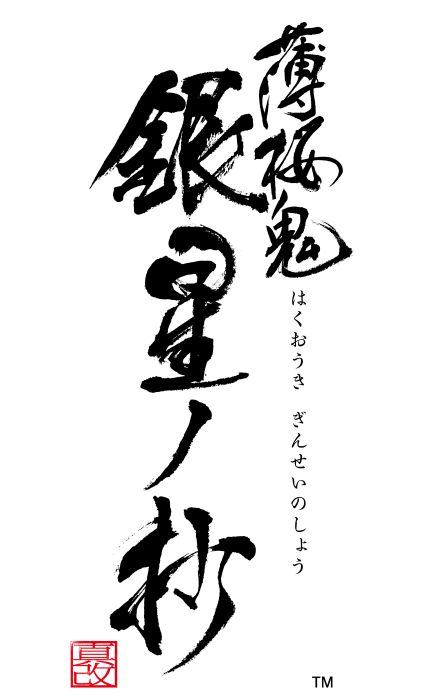 薄桜鬼
はくおうき ぎんせいのしょう
銀星ノ抄
真改
TM